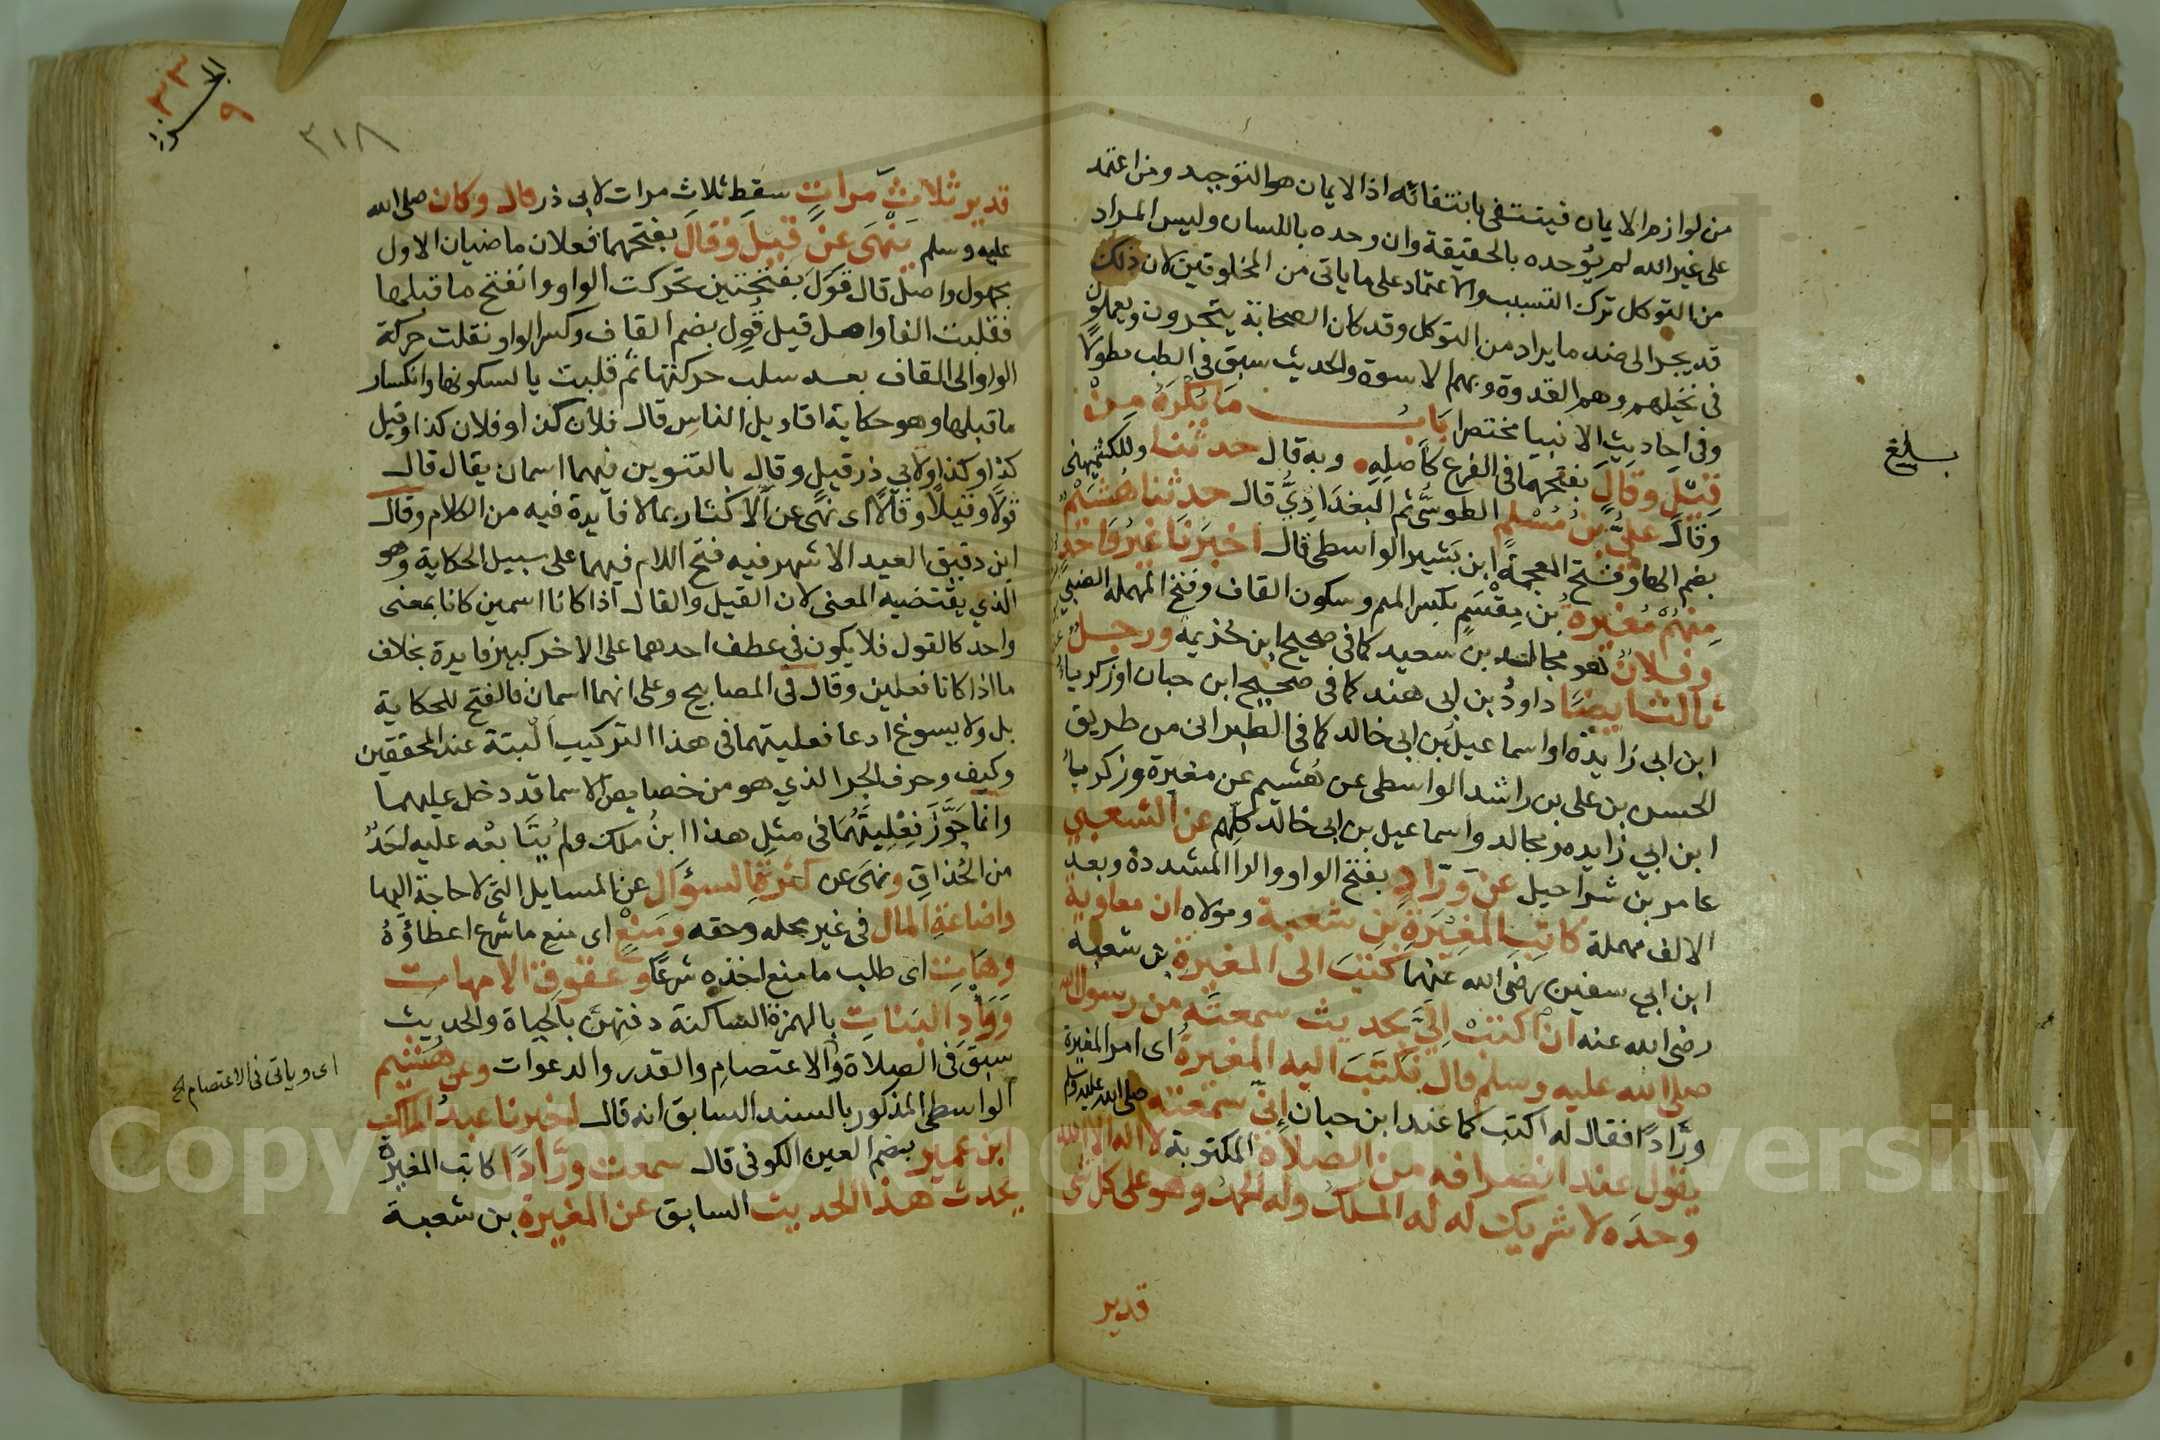 من لوازم الايمان فينتفى بانتفائه اذ الايمان هو التوحيد ومن اعتمد
على غير الله لم يوحده بالحقيقة وان وحده باللسان وليس المراد
من التوكل ترك التسبب والاعتماد على ما ياتى من المخلوقين لان ذلك
قد يجر الى ضد ما يراد من التوكل وقد كان الصحابة يتجرون ويعملون
فى نخيلهم وهم القدوة وبهم الاسوة والحديث سبق فى الطب مطولا
وفى احاديث الانبيا مختصرا باب ما يكره من
قيل وقال بفتحهما فى الفرع كاصله وبه قال حدثنا وللكشميهنى
وقال على بن مسلم الطوسى ثم البغدادى قال حدثنا هشيم
بضم الها وفتح المعجمة ابن بشير الواسطى قال اخبرنا غير واحد
منهم مغيرة بن مقسم بكسر الميم وسكون القاف وفتح المهملة الضبي
وفلان هو مجالد بن سعيد كما فى صحيح ابن خزيمة ورجل
ثالث ايضا داود بن ابى هند كما فى صحيح ابن حبان او زكرياء
ابن ابى زايدة او اسماعيل بن ابى خالد كما فى الطبرانى من طريق
الحسن بن على بن راشد الواسطى عن هشيم عن مغيرة وزكرياء
ابن ابي زايده ومجالد واسماعيل بن ابى خالد كلهم عن الشعبي
عامر بن شراحيل عن وراد بفتح الواو والرا المشددة وبعد
الالف مهملة كاتب المغيرة بن شعبة ومولاه ان معاوية
ابن ابي سفين رضى الله عنهما كتب الى المغيرة بن شعبه
رضى الله عنه ان اكتب الي بحديث سمعته من رسول الله
صلى الله عليه وسلم قال فكتب اليه المغيرة اى امر المغيرة
ورادا فقال له اكتب كما عند ابن حبان انى سمعته صلى الله عليه وسلم
يقول عند انصرافه من الصلاة المكتوبة لا اله الا الله
وحده لا شريك له له الملك وله الحمد وهو على كل شى
قدير
بلغ
٣١٨
قدير ثلاث مرات سقط ثلاث مرات لابى ذر قال وكان صلى الله
عليه وسلم ينهى عن قيل وقال بفتحهما فعلان ماضيان الاول
مجهول واصل قال قول بفتحتين تحركت الواو وانفتح ما قبلها
فقلبت الفا واصل قيل قول بضم القاف وكسر الواو نقلت حركة
الواو الى القاف بعد سلب حركتها ثم قلبت يا لسكونها وانكسار
ما قبلها وهو حكاية اقاويل الناس قال فلان كذا وفلان كذا وقيل
كذا وكذا ولابي ذر قيل وقال بالتنوين فيهما اسمان يقال قال
قولا وقيلا وقالا اى نهى عن الاكثار بما لا فايدة فيه من الكلام وقال
ابن دقيق العيد الاشهر فيه فتح اللام فيهما على سبيل الحكاية وهو
الذي يقتضيه المعنى لان القيل والقال اذا كانا اسمين كانا بمعنى
واحد كالقول فلا يكون فى عطف احدهما على الاخر كبير فايدة بخلاف
ما اذا كانا فعلين وقال فى المصابيح وعلى انهما اسمان فالفتح للحكاية
بل ولا يسوغ ادعا فعليتهما فى هذا التركيب البتة عند المحققين
وكيف وحرف الجر الذي هو من خصايص الاسما قد دخل عليهما
وانما جوز فعليتهما فى مثل هذا ابن ملك ولم يتابعه عليه احد
من الحذاق ونهى عن كثرة السؤال عن المسايل التى لا حاجة اليها
واضاعة المال فى غير محله وحقه ومنع اى منع ما شرع اعطاؤه
وهات اى طلب ما منع اخذه شرعا وعقوق الامهات
ووأد البنات بالهمزة الساكنة دفنهن بالحياة والحديث
سبق فى الصلاة والاعتصام والقدر والدعوات وعن هشيم
الواسطى المذكور بالسند السابق انه قال اخبرنا عبد الملك
ابن عمير بضم العين الكوفى قال سمعت ورادا كاتب المغيرة
يحدث هذا الحديث السابق عن المغيرة بن شعبة
اى وياتى فى الاعتصام
Copyright © King Saud University